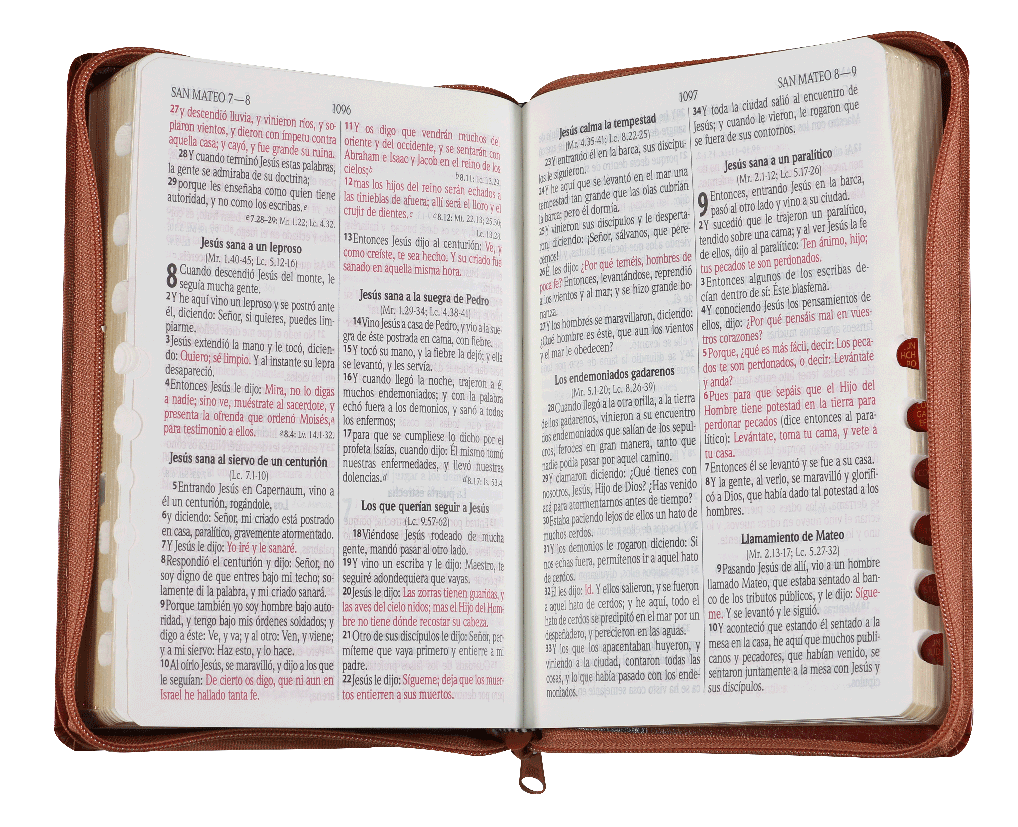 SAN MATEO 7—8
1096
27y descendió lluvia, y vinieron ríos, y so-
plaron vientos, y dieron con ímpetu contra
aquella casa; y cayó, y fue grande su ruina.
28Y cuando terminó Jesús estas palabras,
la gente se admiraba de su doctrina;
29porque les enseñaba como quien tiene
autoridad, y no como los escribas.
7.28-29: Mr. 1.22; Lc. 4.32.
Jesús sana a un leproso
(Mr. 1.40-45; Lc. 5.12-16)
8 Cuando descendió Jesús del monte, le
seguía mucha gente.
2Y he aquí vino un leproso y se postró ante
él, diciendo: Señor, si quieres, puedes lim-
piarme.
3Jesús extendió la mano y le tocó, dicien-
do: Quiero; sé limpio. Y al instante su lepra
desapareció.
4Entonces Jesús le dijo: Mira, no lo digas
a nadie; sino ve, muéstrate al sacerdote, y
presenta la ofrenda que ordenó Moisés,a
para testimonio a ellos. a8.4: Lv. 14.1-32.
Jesús sana al siervo de un centurión
(Lc. 7.1-10)
5Entrando Jesús en Capernaum, vino a
él un centurión, rogándole,
6y diciendo: Señor, mi criado está postrado
en casa, paralítico, gravemente atormentado.
7Y Jesús le dijo: Yo iré y le sanaré.
8Respondió el centurión y dijo: Señor, no
soy digno de que entres bajo mi techo; so-
lamente di la palabra, y mi criado sanará.
9Porque también yo soy hombre bajo auto-
ridad, y tengo bajo mis órdenes soldados; y
digo a éste: Ve, y va; y al otro: Ven, y viene;
y a mi siervo: Haz esto, y lo hace.
10Al oírlo Jesús, se maravilló, y dijo a los que
le seguían: De cierto os digo, que ni aun en
Israel he hallado tanta fe.
11Y os digo que vendrán muchos de
oriente y del occidente, y se sentarán con
Abraham e Isaac y Jacob en el reino de los
cielos;b
b8.11: Lc. 13.29.
12mas los hijos del reino serán echados a
las tinieblas de afuera; allí será el lloro y el
crujir de dientes.c c8.12: Mt. 22.13; 25.30;
Lc. 13.28.
13Entonces Jesús dijo al centurión: Ve, y
como creíste, te sea hecho. Y su criado fue
sanado en aquella misma hora.
Jesús sana a la suegra de Pedro
(Mr. 1.29-34; Lc. 4.38-41)
14Vino Jesús a casa de Pedro, y vio a la sue-
gra de éste postrada en cama, con fiebre.
15Y tocó su mano, y la fiebre la dejó; y ella
se levantó, y les servía.
16Y cuando llegó la noche, trajeron a él
muchos endemoniados; y con la palabra
echó fuera a los demonios, y sanó a todos
los enfermos;
17para que se cumpliese lo dicho por el
profeta Isaías, cuando dijo: Él mismo tomó
nuestras enfermedades, y llevó nuestras
dolencias.d d8.17: Is. 53.4
Los que querían seguir a Jesús
(Lc. 9.57-62)
18Viéndose Jesús rodeado de mucha
gente, mandó pasar al otro lado.
19Y vino un escriba y le dijo: Maestro, te
seguiré adondequiera que vayas.
20Jesús le dijo: Las zorras tienen guaridas, y
las aves del cielo nidos; mas el Hijo del Hom-
bre no tiene dónde recostar su cabeza.
21Otro de sus discípulos le dijo: Señor, per-
míteme que vaya primero y entierre a mi
padre.
22Jesús le dijo: Sígueme; deja que los muer-
tos entierren a sus muertos.
1097
SAN MATEO 8—9
Jesús calma la tempestad
(Mr. 4.35-41; Lc. 8.22-25)
23Y entrando él en la barca, sus discípu-
los le siguieron.
24Y he aquí que se levantó en el mar una
tempestad tan grande que las olas cubrían
la barca; pero él dormía.
25Y vinieron sus discípulos y le desperta-
ron, diciendo: ¡Señor, sálvanos, que pere-
cemos!
26Él les dijo: ¿Por qué teméis, hombres de
poca fe? Entonces, levantándose, reprendió
a los vientos y al mar; y se hizo grande bo-
nanza.
27Y los hombres se maravillaron, diciendo:
¿Qué hombre es éste, que aun los vientos
y el mar le obedecen?
Los endemoniados gadarenos
(Mr. 5.1-20; Lc. 8.26-39)
28Cuando llegó a la otra orilla, a la tierra
de los gadarenos, vinieron a su encuentro
dos endemoniados que salían de los sepul-
cros, feroces en gran manera, tanto que
nadie podía pasar por aquel camino.
29Y clamaron diciendo: ¿Qué tienes con
nosotros, Jesús, Hijo de Dios? ¿Has venido
acá para atormentarnos antes de tiempo?
30Estaba paciendo lejos de ellos un hato de
muchos cerdos.
31Y los demonios le rogaron diciendo: Si
nos echas fuera, permítenos ir a aquel hato
de cerdos.
32Él les dijo: Id. Y ellos salieron, y se fueron
a aquel hato de cerdos; y he aquí, todo el
hato de cerdos se precipitó en el mar por un
despeñadero, y perecieron en las aguas.
33Y los que los apacentaban huyeron, y
viniendo a la ciudad, contaron todas las
cosas, y lo que había pasado con los ende-
moniados.
34Y toda la ciudad salió al encuentro de
Jesús; y cuando le vieron, le rogaron que
se fuera de sus contornos.
Jesús sana a un paralítico
(Mr. 2.1-12; Lc. 5.17-26)
9 Entonces, entrando Jesús en la barca,
pasó al otro lado y vino a su ciudad.
2Y sucedió que le trajeron un paralítico,
tendido sobre una cama; y al ver Jesús la fe
de ellos, dijo al paralítico: Ten ánimo, hijo;
tus pecados te son perdonados.
3Entonces algunos de los escribas de-
cían dentro de sí: Éste blasfema.
4Y conociendo Jesús los pensamientos de
ellos, dijo: ¿Por qué pensáis mal en vues-
tros corazones?
5Porque, ¿qué es más fácil, decir: Los peca-
dos te son perdonados, o decir: Levántate
y anda?
6Pues para que sepáis que el Hijo del
Hombre tiene potestad en la tierra para
perdonar pecados (dice entonces al para-
lítico): Levántate, toma tu cama, y vete a
tu casa.
7Entonces él se levantó y se fue a su casa.
8Y la gente, al verlo, se maravilló y glorifi-
có a Dios, que había dado tal potestad a los
hombres.
Llamamiento de Mateo
(Mr. 2.13-17; Lc. 5.27-32)
9Pasando Jesús de allí, vio a un hombre
llamado Mateo, que estaba sentado al ban-
co de los tributos públicos, y le dijo: Sígue-
me. Y se levantó y le siguió.
10Y aconteció que estando él sentado a la
mesa en la casa, he aquí que muchos publi-
canos y pecadores, que habían venido, se
sentaron juntamente a la mesa con Jesús y
sus discípulos.